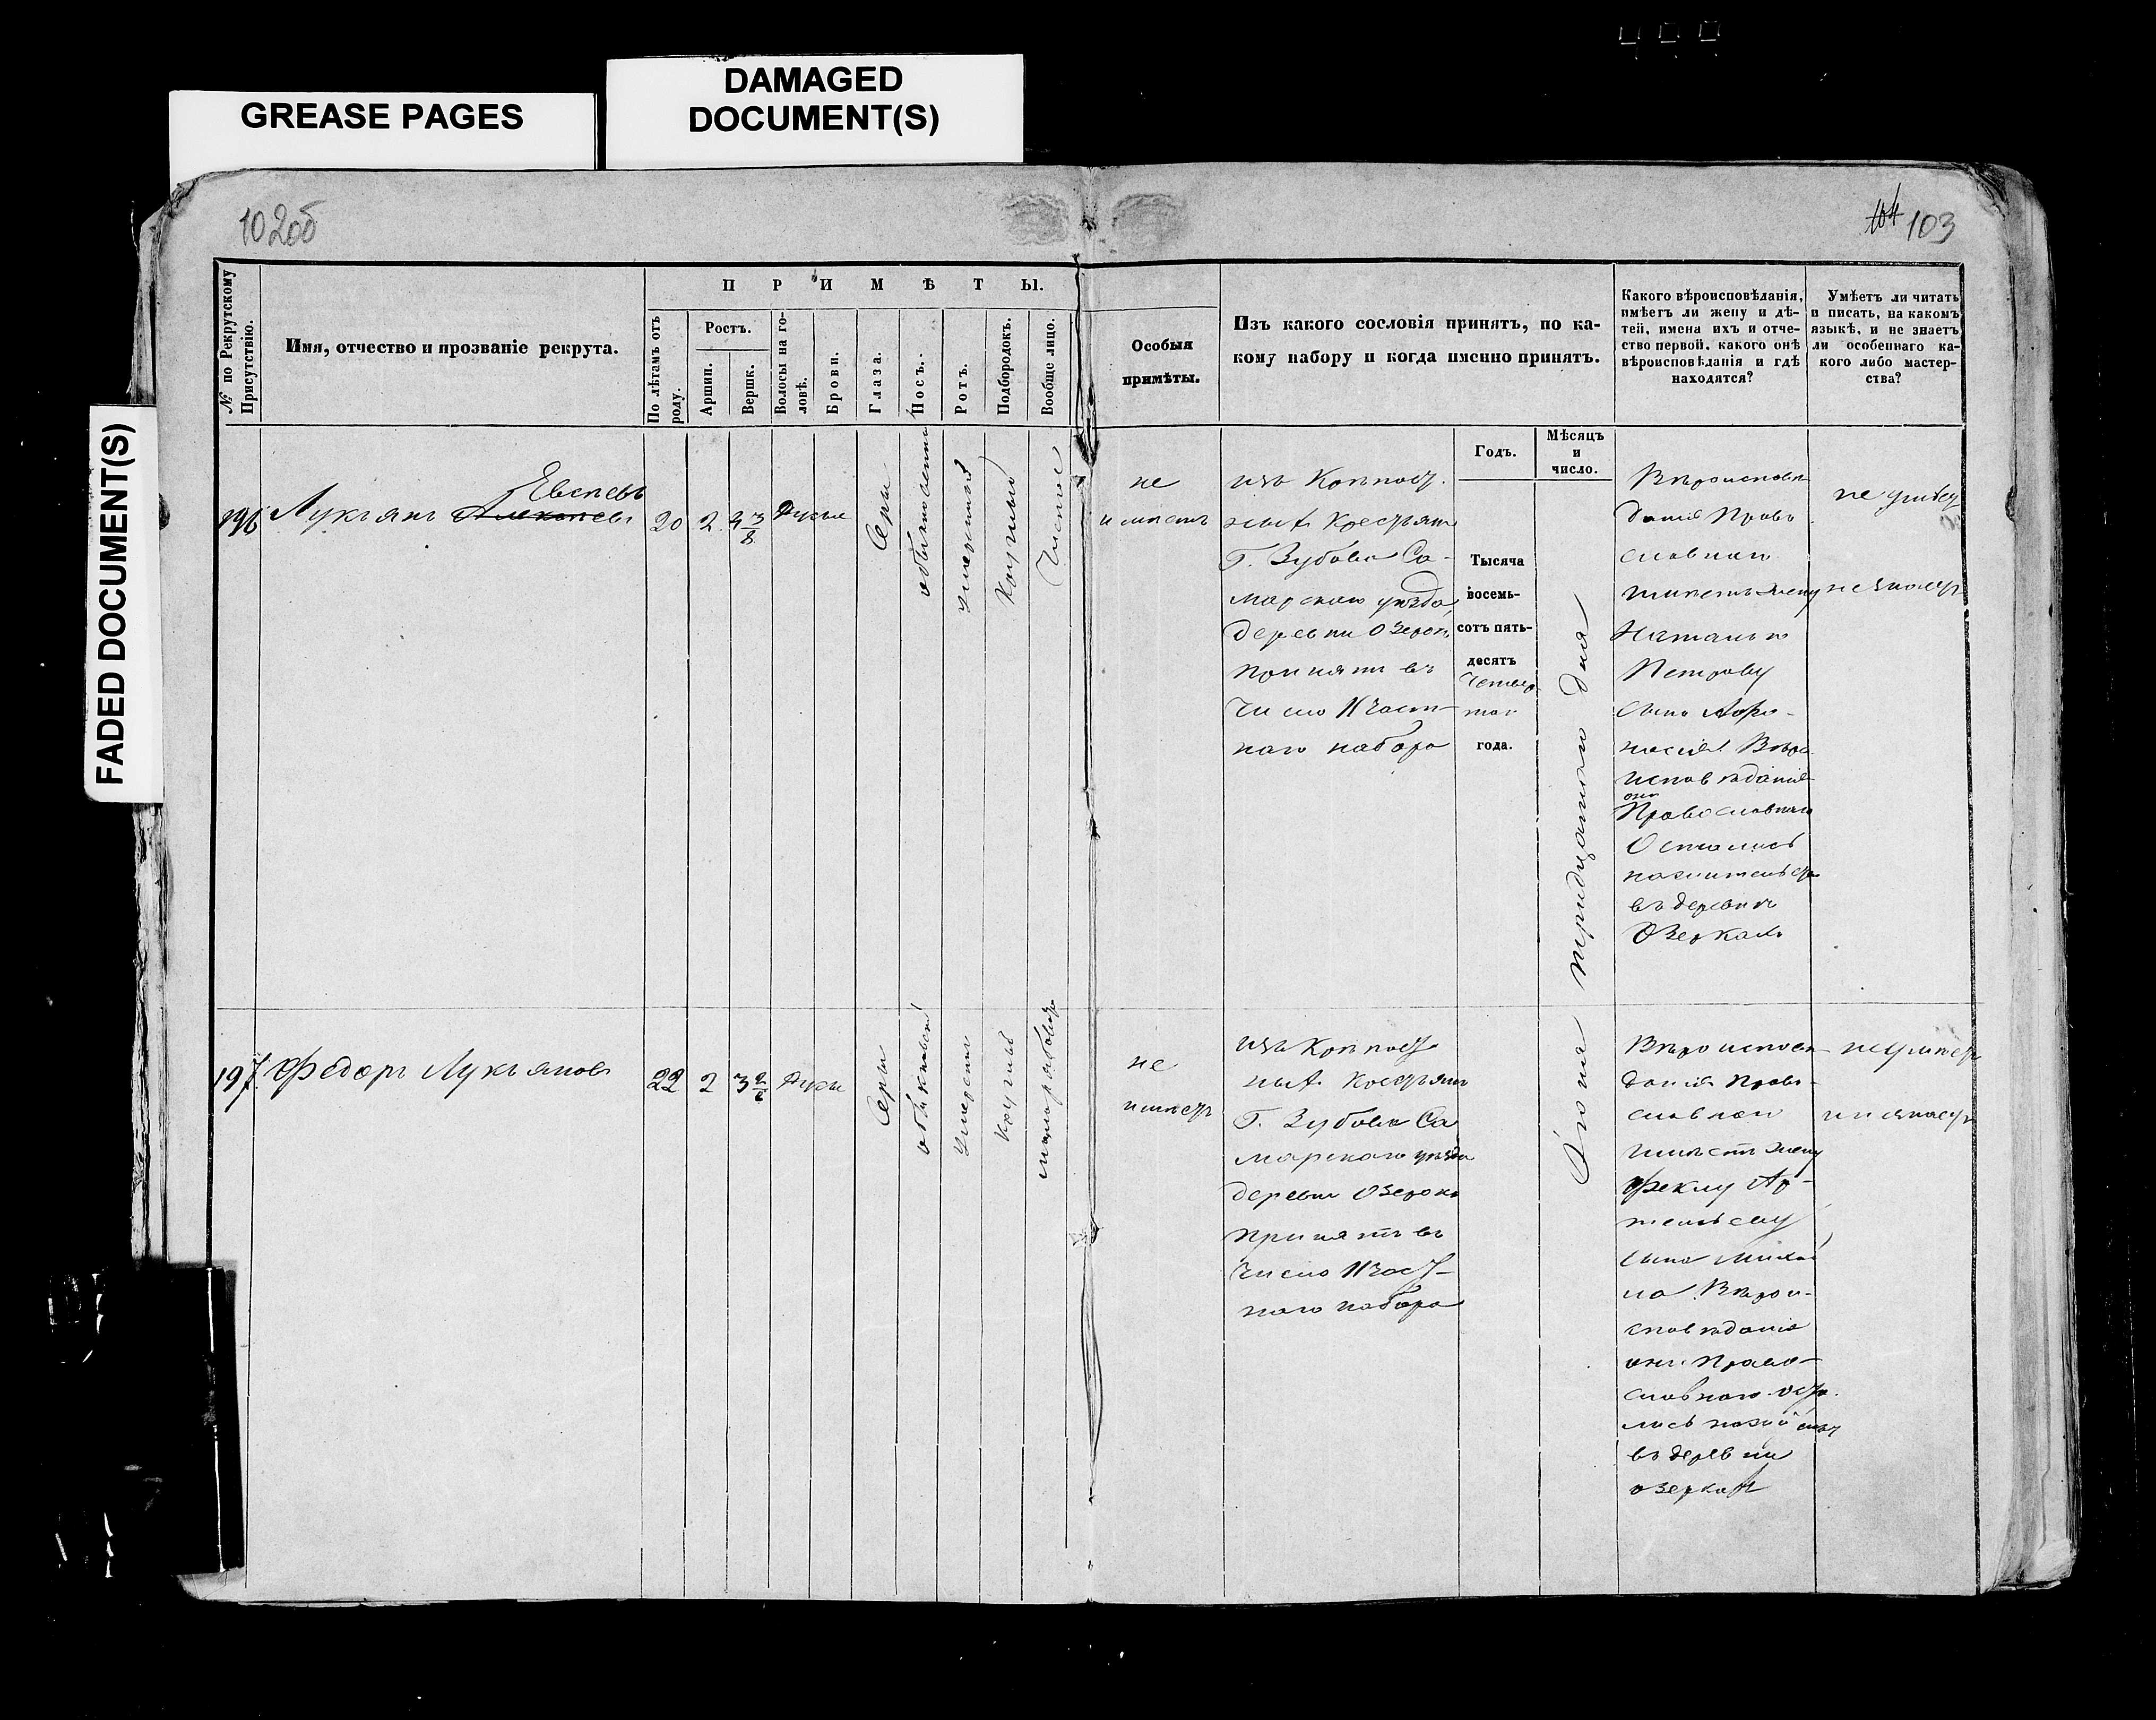 GREASE PAGES
DAMAGED
DOCUMENT(S)
FADED DOCUMENT(S)
102об
104 103
№ по Рекрутскому
Присутствію.
Имя, отчество и прозваніе рекрута.
ПРИМѢТЫ.
По лѣтамъ отъ
роду.
Ростъ.
Аршин.
Вершк.
Волосы на го-
ловѣ.
Брови.
Глаза.
Носъ.
Ротъ.
Подбородокъ.
Вообще лицо.
Особыя
примѣты.
Изъ какого сословія принятъ, по ка-
кому набору и когда именно принятъ.
Годъ.
Мѣсяцъ
и
число.
Какого вѣроисповѣданія,
имѣетъ ли жену и дѣ-
тей, имена ихъ и отче-
ство первой, какого онѣ
вѣроисповѣданія и гдѣ
находятся?
Умѣетъ ли читать
и писать, на какомъ
языкѣ, и не знаетъ
ли особеннаго ка-
кого либо мастер-
ства?
196
Лукьянъ
20
2
Русые
Серы
обыкновенный
умеренный
Круглый
Чистое
не
имѣетъ
изъ Крѣпост.
ныхъ Крестьянъ
Г. Зубова Са-
марскаго уѣзда
деревни Озерокъ
принятъ въ
число 11 част-
наго набора
Тысяча
восемь-
сотъ пять-
десятъ
четвер-
таго
года.
Іюня тридцатаго дня
Вѣроисповѣ
данія Право
славнаго
имѣетъ жену
Наталью
Петрову
сына Афо-
насія Вѣро
исповѣданія
они
Православнаго
Остались
на жительст
въ деревнѣ
Озеркахъ
не умѣет
не знает
197
Федоръ Лукьяновъ
22
2
3 2/8
Русы
Серы
обыкновен
Умерен
Круглый
не
имѣет
изъ Крѣпост
ныхъ Крестьянъ
Г. Зубова Са
марскаго уѣзда
деревни Озерокъ
принятъ въ
число 11 част-
наго набора
Вѣроисповѣ
данія Право-
славнаго
имѣетъ жену
Феклу Ар-
темьеву
сына Михаи
ла Вѣрои-
сповѣданія
они Право-
славнаго оста
лись на жит
въ деревни
озеркахъ
не умѣет
и не знает